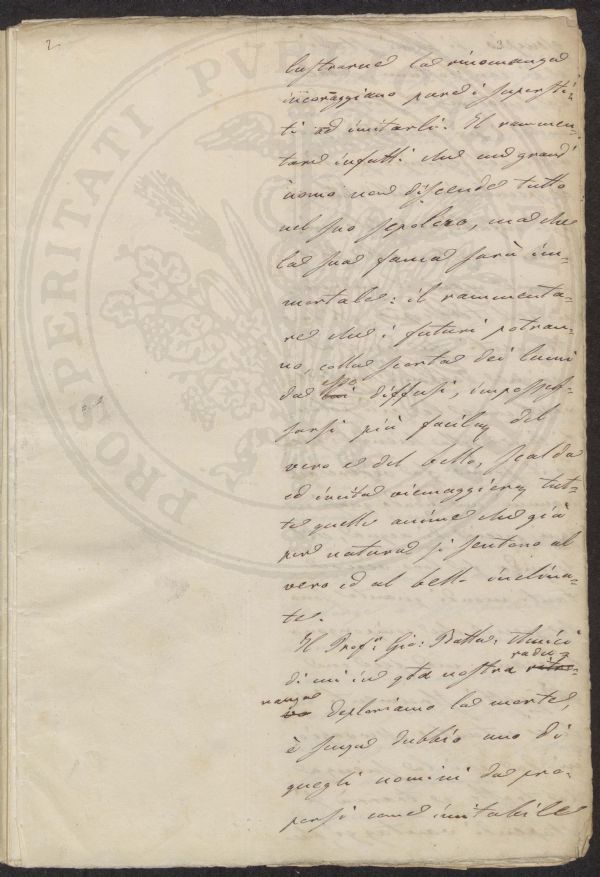 2.
lustrarne la rinomanza
incoraggiano pure i supersti=
ti ad imitarli. Il rammen=
tare infatti che un grand'
uomo non discende tutto
nel suo sepolcro, ma che
la sua fama sarà im=
mortale: il rammenta=
re che i futuri potran=
no, colla scorta dei lumi
da esso diffusi, imposses=
sarsi più facilm del
vero e del bello, scalda
ed incita viemaggiorm tut=
te quelle anime che già
per natura si sentono al
vero ed al bello inclina=
te.
Il Prof.r Gio: Batta: Amici
di cui in qta nostra radu=
nanza deploriamo la morte,
è senza dubbio uno di
quegli uomini da pro=
porsi come imitabile
PROSPERITATI PUBL